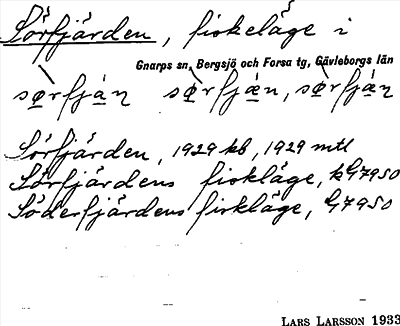 Sörfjärden, fiskeläge i
Gnarps sn, Bergsjö och Forsa tg, Gävleborgs län
Sörfjärden, 1929 kb, 1929 mtl
Sörfjärdens fiskläge, kG7950
Söderfjärdens fiskläge, G7950
LARS LARSSON 1933